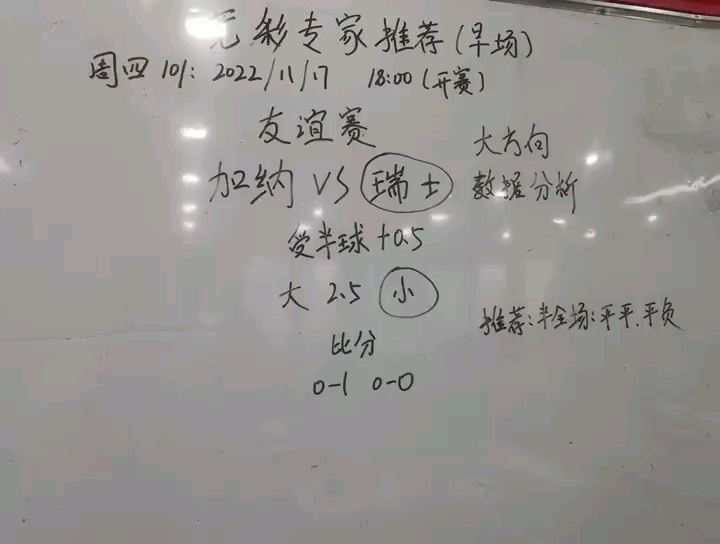 彩专家推荐(早场)
周四101: 2022/11/17 18:00(开赛)
友谊赛
加纳 VS 瑞士
受半球+0.5
大 2.5 小
比分
0-1 0-0
大方向
数据分析
推荐:半全场:平平.平负